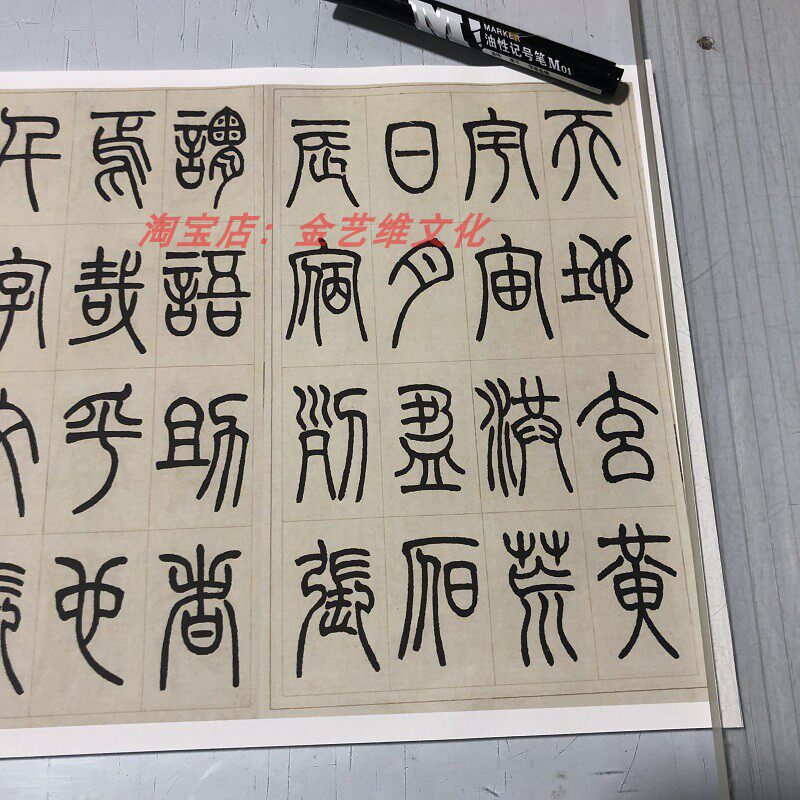 M!
MARKER
油性记号笔M01
天地玄黄
宇宙洪荒
日月盈昃
辰宿列張
謂語助者
焉哉乎也
字文
淘宝店：金艺维文化